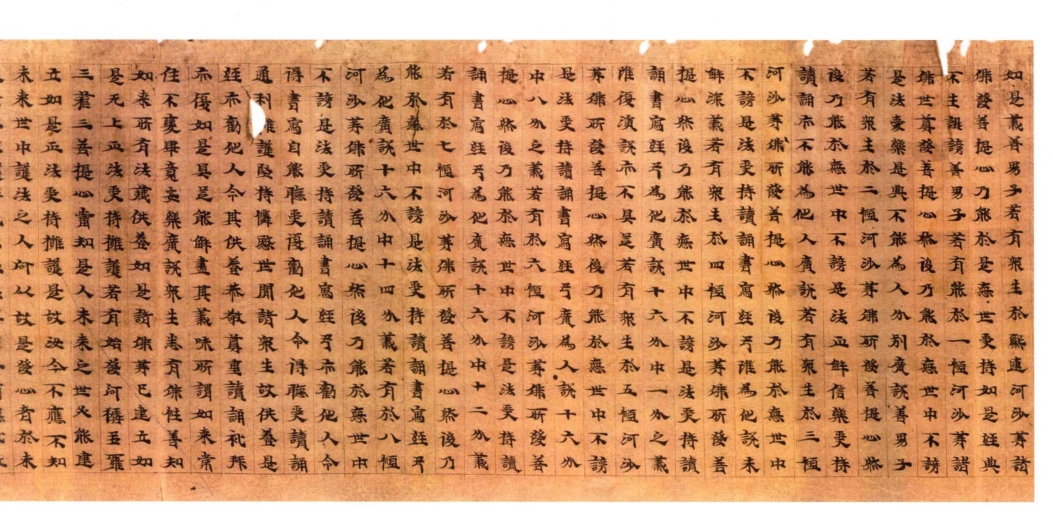 如是義善男子若有衆生於熙連河沙等諸
佛發菩提心乃能於是惡世受持如是經典
不生誹謗善男子若有能於一恒河沙等諸
佛世尊發菩提心然後乃能於惡世中不謗
是法愛樂是典不能為人分別廣說善男子
若有衆生於二恒河沙等佛所發菩提心然
後乃能於惡世中不謗是法正解信樂受持
讀誦亦不能為他人廣說若有衆生於三恒
河沙等佛所發菩提心然後乃能於惡世中
不謗是法受持讀誦書寫經弓雖為他說未
解深義若有衆生於四恒河沙等佛所發菩
提心然後乃能於惡世中不謗是法受持讀
誦書寫經弓為他廣說十六分中一分之義
雖復演說亦不具足若有衆生於五恒河沙
等佛所發菩提心然後乃能於惡世中不謗
是法受持讀誦書寫經弓廣為人說十六分
中八分之義若有於六恒河沙等佛所發菩
提心然後乃能於惡世中不謗是法受持讀
誦書寫經弓為他廣說十六分中十二分義
若有於七恒河沙等佛所發菩提心然後乃
能於惡世中不謗是法受持讀誦書寫經弓
為他廣說十六分中十四分義若有於八恒
河沙等佛所發菩提心然後乃能於惡世中
不謗是法受持讀誦書寫經弓亦勸他人令
得書寫自能聽受復勸他人令得聽受讀誦
通利擁護堅持憐愍世間諸衆生故供養是
經亦勸他人令其供養恭敬尊重讀誦礼拜
亦復如是具足能解盡其義味所謂如來常
住不變畢竟安樂廣說衆生悉有佛性善知
如來所有法藏供養如是諸佛等已建立如
是无上正法受持擁護若有始發阿耨三羅
三藐三菩提心當知是人未來之世必能建
立如是正法受持擁護是故汝今不應不知
未來世中護法之人何以故是發心者於未